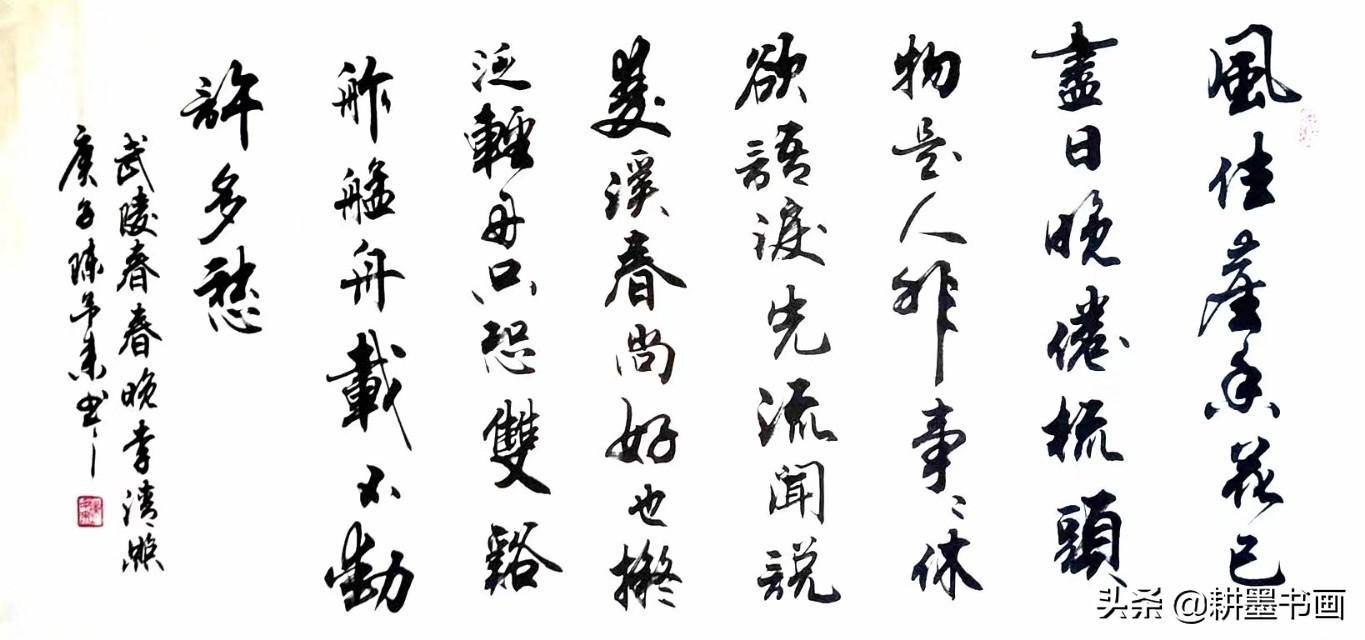 風住塵香花已
盡日晚倦梳頭
物是人非事〻休
欲語淚先流聞說
雙溪春尚好也擬
泛輕舟只恐雙谿
舴艋舟載不動
許多愁
武陵春春晚李清照
庚子陳東书
头条 @耕墨书画